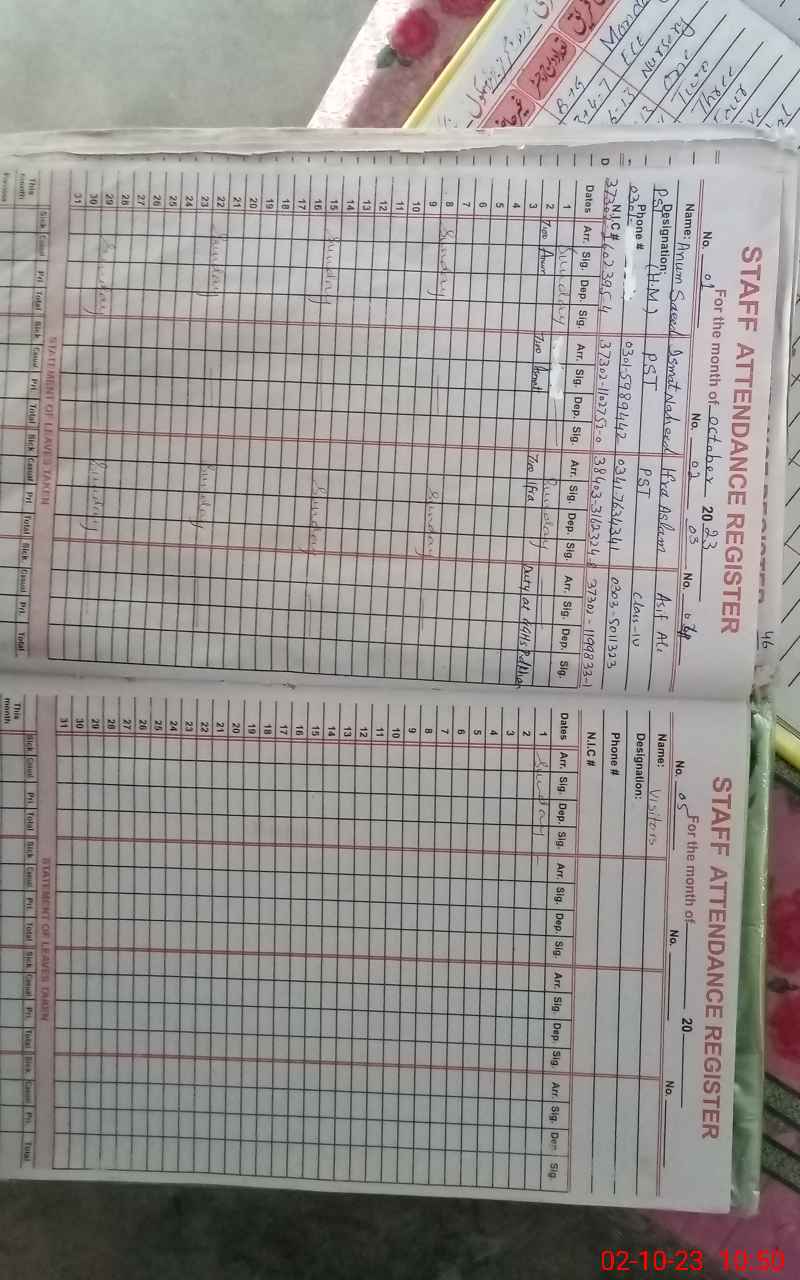 46
STAFF ATTENDANCE REGISTER
For the month of october 2023
No. 01 No. 02 03 No. 04
Name: Anum Saeed Ismat Naheed Ifra Aslam Asif Ali
Designation: PST (H.M) PST PST class-IV
Phone # 0301- 0301-5989442 03417634341 0303-5011323
N.I.C #
Dates Arr. Sig. Dep. Sig. Arr. Sig. Dep. Sig. Arr. Sig. Dep. Sig. Arr. Sig. Dep. Sig.
1 Sunday Sunday
2 7:00 Anum 7:00 Ismat 7:00 Ifra Duty at
3
4
5
6
7
8 Sunday Sunday
9
10
11
12
13
14
15 Sunday Sunday
16
17
18
19
20
21
22 Sunday Sunday
23
24
25
26
27
28
29 Sunday Sunday
30
31
STATEMENT OF LEAVES TAKEN
Sick Casual Pri. Total Sick Casual Pri. Total Sick Casual Pri. Total Sick Casual Pri. Total
This month
Previous
STAFF ATTENDANCE REGISTER
For the month of 20
No. 05 No. No.
Name: Visitors
Designation:
Phone #
N.I.C #
Dates Arr. Sig. Dep. Sig. Arr. Sig. Dep. Sig. Arr. Sig. Dep. Sig. Arr. Sig. Dep. Sig.
1 Sunday
2
3
4
5
6
7
8
9
10
11
12
13
14
15
16
17
18
19
20
21
22
23
24
25
26
27
28
29
30
31
STATEMENT OF LEAVES TAKEN
Sick Casual Pri. Total Sick Casual Pri. Total Sick Casual Pri. Total Sick Casual Pri. Total
This month
ECE
Nursery
One
Two
Three
02-10-23 10:50